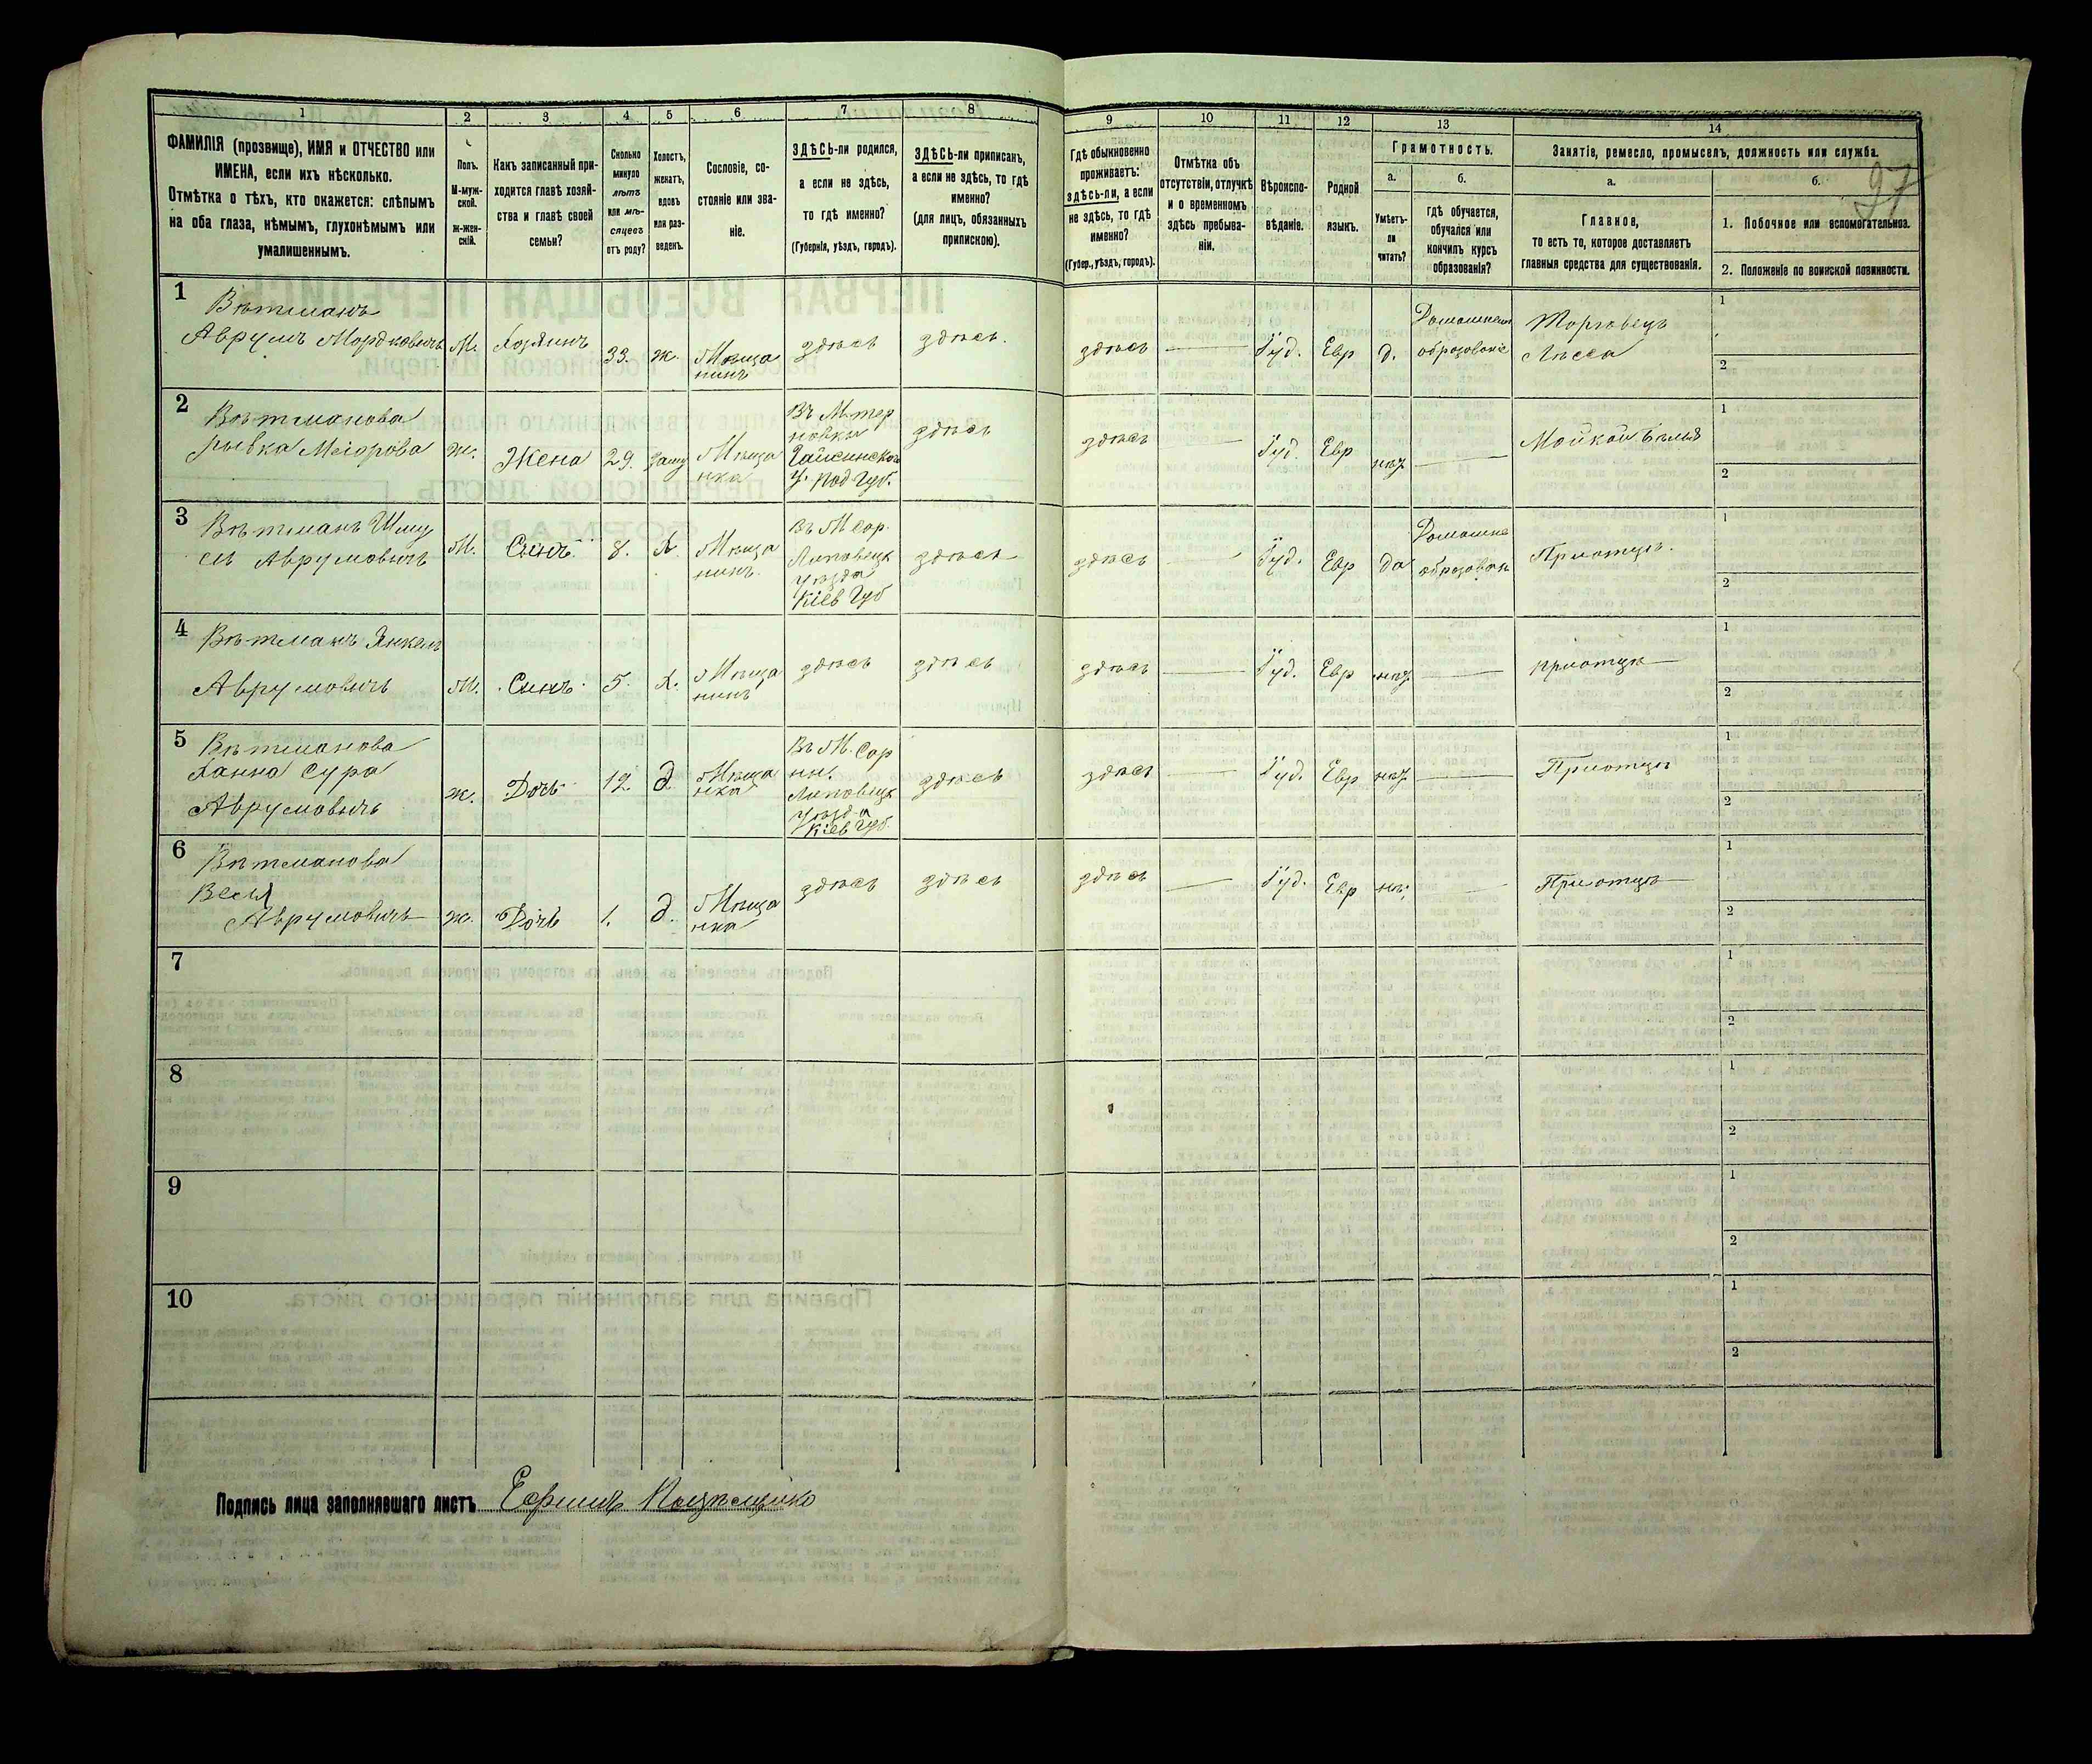 1 2 3 4 5 6 7 8 9 10 11 12 13 14
97
ФАМИЛІЯ (прозвище), ИМЯ и ОТЧЕСТВО или
ИМЕНА, если ихъ нѣсколько.
Отмѣтка о тѣхъ, кто окажется: слѣпымъ
на оба глаза, нѣмымъ, глухонѣмымъ или
умалишеннымъ.
Полъ.
М-муж-
ской.
Ж-жен-
скій.
Какъ записанный при-
ходится главѣ хозяй-
ства и главѣ своей
семьи?
Сколько
минуло
лѣтъ
или мѣ-
сяцевъ
отъ роду?
Холостъ,
женатъ,
вдовъ
или раз-
веденъ.
Сословіе, со-
стояніе или зва-
ніе.
ЗДѢСЬ-ли родился,
а если не здѣсь,
то гдѣ именно?
(Губернія, уѣздъ, городъ).
ЗДѢСЬ-ли приписанъ,
а если не здѣсь, то гдѣ
именно?
(для лицъ, обязанныхъ
припискою).
Гдѣ обыкновенно
проживаетъ:
здѣсь-ли, а если
не здѣсь, то гдѣ
именно?
(Губер., уѣздъ, городъ).
Отмѣтка объ
отсутствіи, отлучкѣ
и о временномъ
здѣсь пребыва-
ніи.
Вѣроиспо-
вѣданіе.
Родной
языкъ.
Грамотность.
а.
Умѣетъ-
ли
читать?
б.
гдѣ обучается,
обучался или
кончилъ курсъ
образованія?
Занятіе, ремесло, промыселъ, должность или служба.
а.
Главное,
то есть то, которое доставляетъ
главныя средства для существованія.
б.
1. Побочное или вспомогательное.
2. Положеніе по воинской повинности.
1
Вѣтманъ
Аврумъ Мордковичъ
М.
Хозяинъ
33.
ж.
Мѣща
нинъ
здѣсь
здѣсь.
здѣсь
Іуд.
Евр
д.
Домашнее
образованіе
Торговецъ
Лѣса
1
2
2
Вѣтманова
Рывка Меіорова
ж.
Жена
29.
замуж
Мѣща
нка
Въ М. тер
новки
Гайсинского
У. Под Губ.
здѣсь
здѣсь
Іуд.
Евр
нѣт
1
2
3
Вѣтманъ Шму
ль Аврумовичъ
М.
Сынъ
8.
Х.
Мѣща
нинъ.
Въ М Сор.
Липовецк
Уѣзда
Кіев Губ
здѣсь
здѣсь
Іуд.
Евр
да
Домашне
образован
При отцѣ.
1
2
4
Вѣтманъ Янкель
Аврумовичъ
М.
Сынъ
5.
Х.
Мѣща
нинъ
здѣсь
здѣсь
здѣсь
Іуд.
Евр
нѣт
при отцѣ
1
2
5
Вѣтманова
Ханна Сура
Аврумовичъ
ж.
Дочь
12
д
Мѣща
нка
Въ М. Сор
нн.
Липовецк
Уѣзда
Кіев Губ.
здѣсь
здѣсь
Іуд.
Евр
нѣт
При отцѣ
1
2
6
Вѣтманова
Веля
Аврумовичъ
ж.
Дочь
1.
д.
Мѣща
нка
здѣсь
здѣсь
здѣсь
Іуд.
Евр
нѣт
При отцѣ
1
2
7
1
2
8
1
2
9
1
2
10
1
2
Подпись лица заполнявшаго листъ Ефимъ